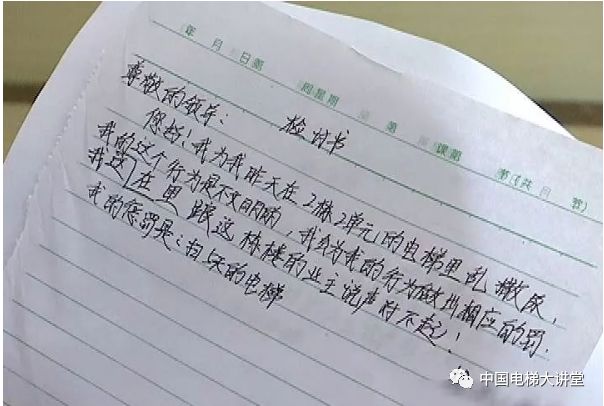 年 月 日第 周星期 第 课第 节(共 节)
检讨书
尊敬的领导:
您好!我为我昨天在2栋2单元的电梯里乱撒尿,
我的这个行为是不文明的,我会为我的行为做出相应的罚.
我这在里跟这栋楼的业主说声对不起!
我的惩罚是:扫5天的电梯
中国电梯大讲堂